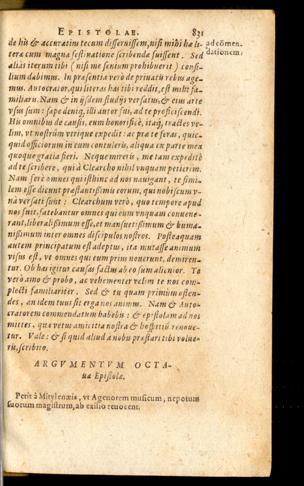 EPISTOLAE. 821
de his & accuratius tecum disseruissem, nisi mihi hæ li- ad cōmen.
teræ cum magna festinatione scribendæ fuissent. Sed dationem;
aliàs iterum tibi (nisi me senium prohibuerit) consi-
lium dabimus. In præsentia verò de priuatis rebus age-
mus. Autocrator, qui literas has tibi reddit, est mihi fa-
miliaris. Nam & in ijsdem studijs versatus, & eius arte
vsus sum: sæpe deniq, illi autor fui, ad te proficiscendi.
His omnibus de causis, eum honorificè, itaq, tractes ve-
lim, vt nostrûm vterique expedit: ac præ te feras, quic-
quid officiorum in eum contuleris, aliqua ex parte mea
quoque gratia fieri. Neque mireris, me tam expeditè
ad te scribere, qui à Clearcho nihil vnquam petierim.
Nam ferè omnes qui isthinc ad nos nauigant, te simi-
lem esse dicunt præstantissimis eorum, qui nobiscum v-
nà versati sunt: Clearchum verò, quo tempore apud
nos fuit, fatebantur omnes qui eum vnquam conuene-
rant, liberalissimum esse, et mansuetissimum & huma-
nissimum inter omnes discipulos nostros. Posteaquam
autem principatum est adeptus, ita mutasse animum
visus est, vt omnes qui eum prius nouerunt, demiren-
tur. Ob has igitur causas factus ab eo sum alienior. Te
verò amo & probo, ac vehementer velim te nos com-
plecti familiariter. Sed & tu quam primùm osten-
des, an idem tuus sit erga nos animus. Nam & Auto-
cratorem commendatum habebis: & epistolam ad nos
mittes, qua vetus amicitia nostra & hospitiū renoue-
tur. Vale: & si quid aliud à nobu præstari tibi volue-
ris, scribito.
ARGVMENTVM OCTA-
ua Epistolæ.
Petit à Mitylenæis, vt Agenorem musicum, nepotum
suorum magistrum, ab exilio reuocent.